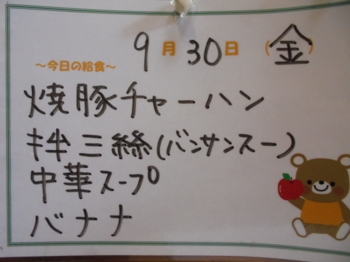 9月30日(金)
～今日の給食～
焼豚チャーハン
拌三絲(バンサンスー)
中華スープ
バナナ